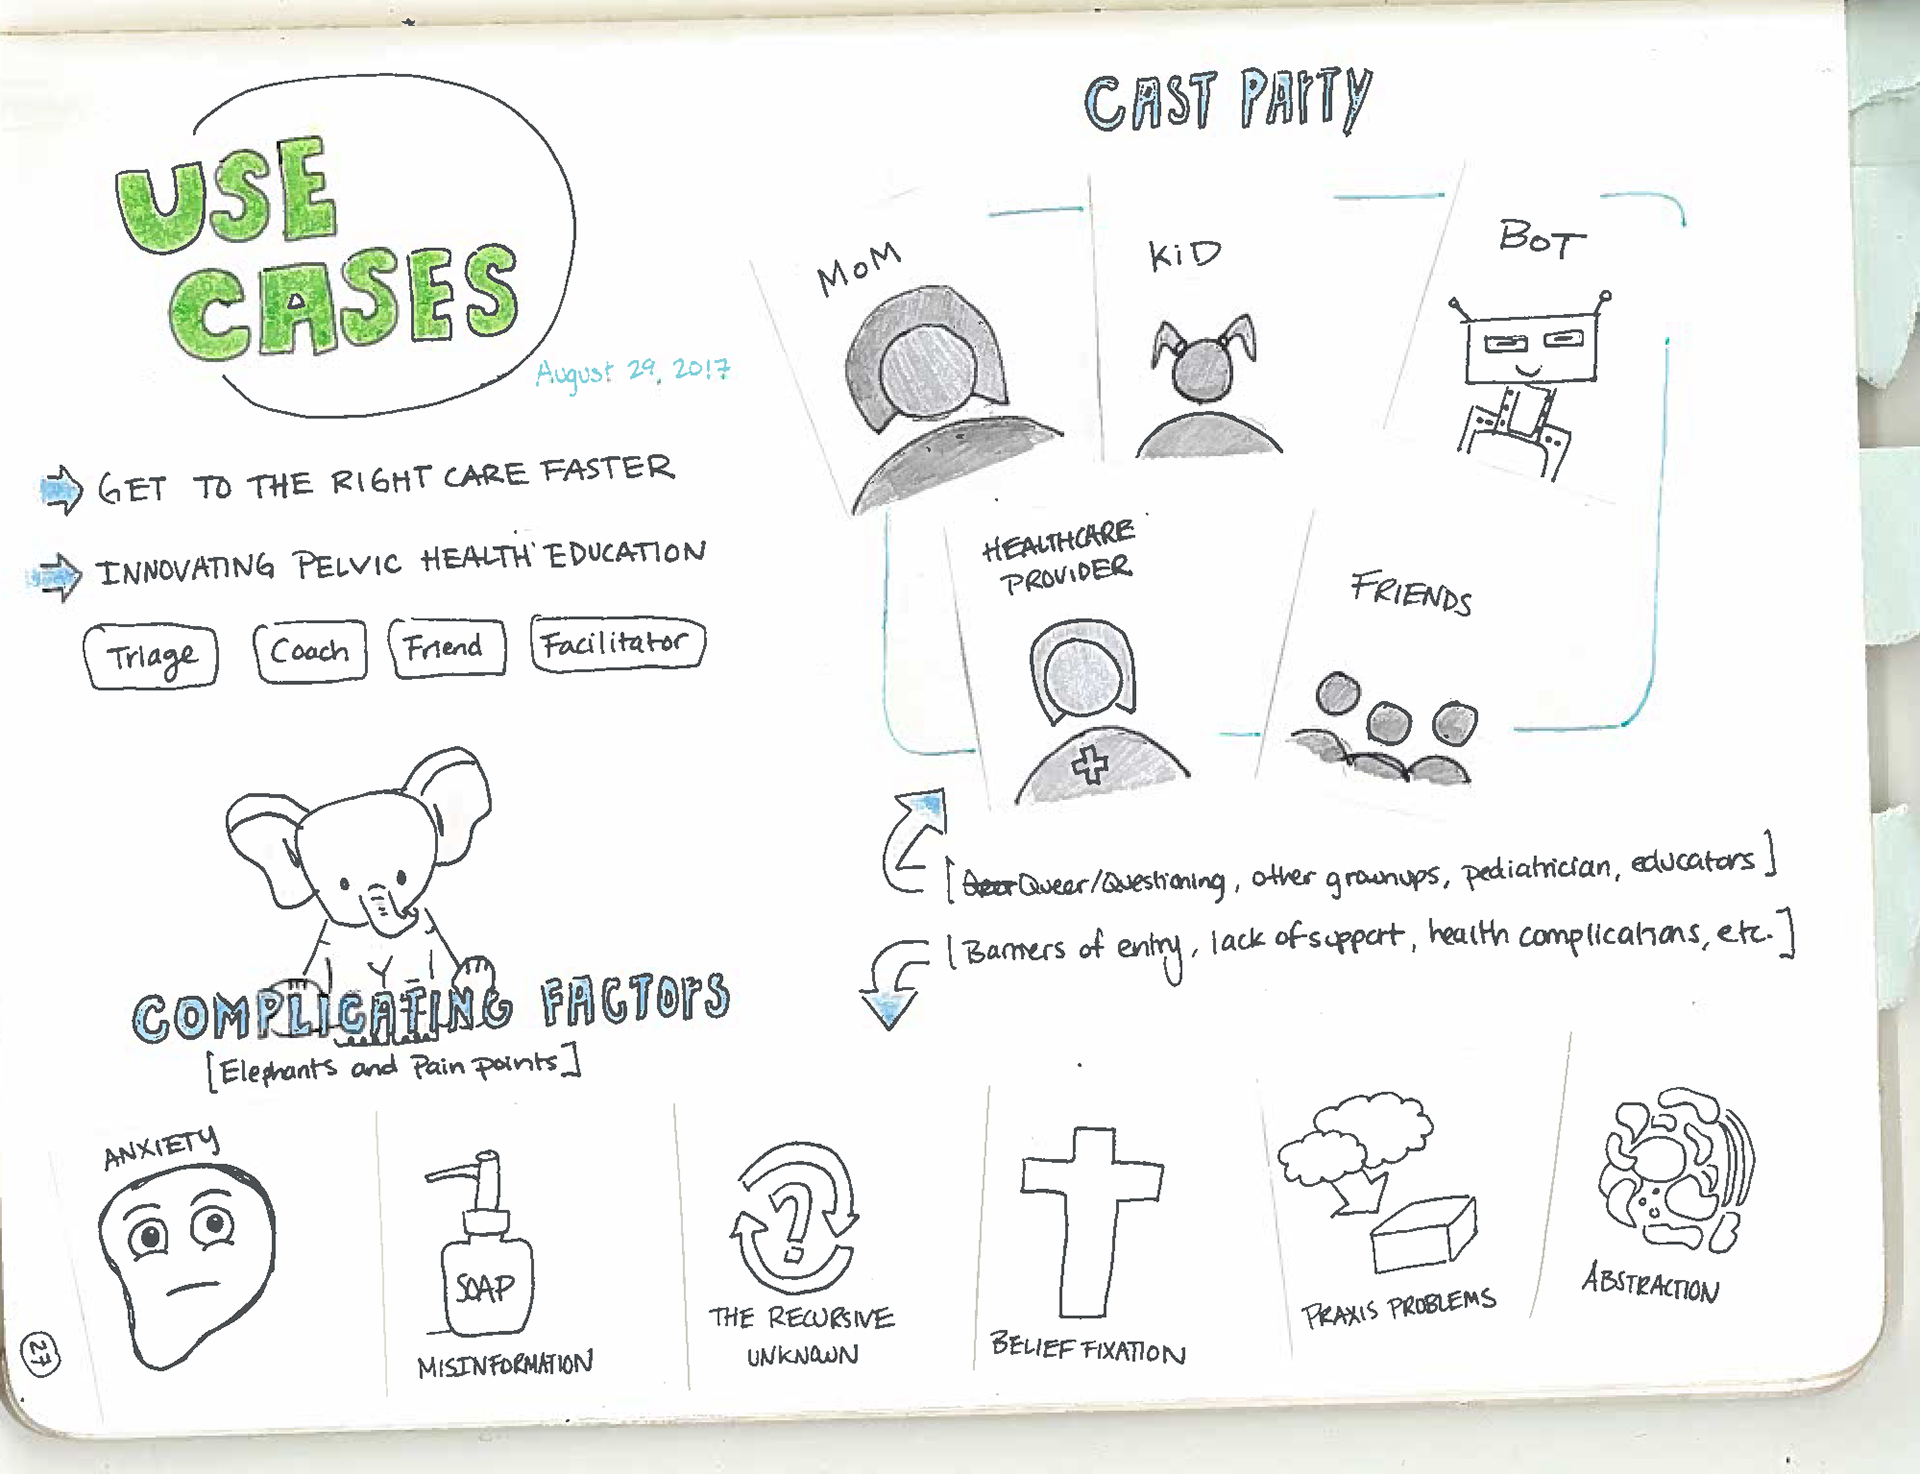 USE
CASES
August 29, 2017
GET TO THE RIGHT CARE FASTER
INNOVATING PELVIC HEALTH EDUCATION
Triage Coach Friend Facilitator
CAST PArTY
MOM
KiD
BOT
HEALTHCARE
PROVIDER
FRIENDS
[Queer/Questioning, other grownups, pediatrician, educators]
[Barriers of entry, lack of support, health complications, etc.]
COMPLICATING FACTOrS
[Elephants and Pain points]
ANXIETY
SOAP
MISINFORMATION
THE RECURSIVE
UNKNOWN
BELIEF FIXATION
PRAXIS PROBLEMS
ABSTRACTION
27